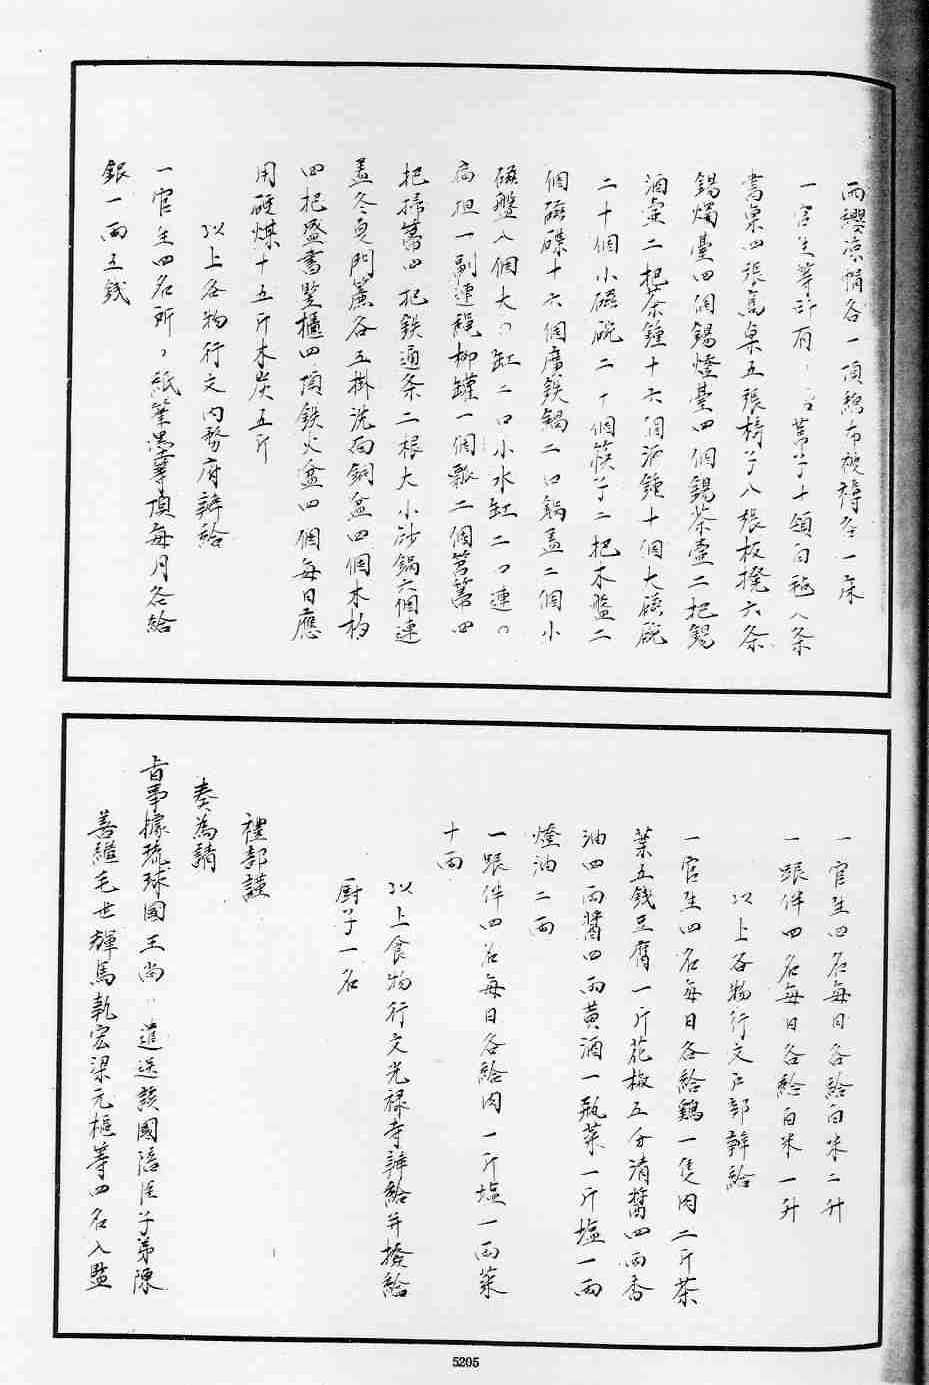 雨纓涼帽各一頂綿布被褥各一床
一官生等所有 蓆子十領白氊八条
書桌四張高桌五張椅子八張板櫈六条
錫燭臺四個錫燈臺四個錫茶壷二把錫
酒壷二把茶鍾十六個酒鍾十個大磁碗
二十個小磁碗二十個筷子二把木盤二
個磁碟十六個廣鉄鍋二口鍋盖二個小
磁盤八個大口缸二口小水缸二口連口
扁担一副連繩柳罐一個瓢二個筥蓠四
把掃箒四把鉄通条二根大小沙鍋六個連
盖冬夏門簾各五掛洗面銅盆四個木杓
四把盛書竪櫃四頂鉄火盆四個每日應
用硬煤十五斤木炭五斤
以上各物行文内務府辦給
一官生四名所丶紙筆墨等項每月各給
銀一兩五錢
一官生四名每日各給白米二升
一跟伴四名每日各給白米一升
以上各物行文戸部辦給
一官生四名每日各給鷄一隻肉二斤茶
葉五錢豆腐一斤花椒五分清醬四兩香
油四兩醬四兩黄酒一瓶菜一斤塩一兩
燈油二兩
一跟伴四名每日各給肉一斤塩一兩菜
十兩
以上食物行文光禄寺辦給并撥給
厨子一名
禮部謹
奏為請
旨事據琉球國王尚丶遣送該國陪臣子弟陳
善繼毛世輝馬執宏梁元樞等四名入監
5205